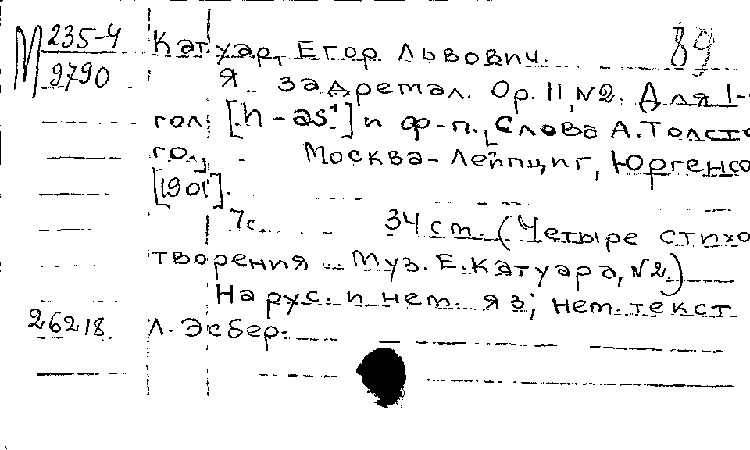 М 235-4
9790
Катуар, Егор Львович. 89
Я задремал. Op. 11, №2. Для 1-
гол. [h-as¹] и ф-п., Слова А. Толсто
го,
Москва-Лейпциг, Юргенсо
[1901].
7с. 34 ст. (Четыре стихо
творения ... Муз. Е. Катуара, №2)
На рус. и нем. яз; нем. текст
26218 Л. Эсбер.